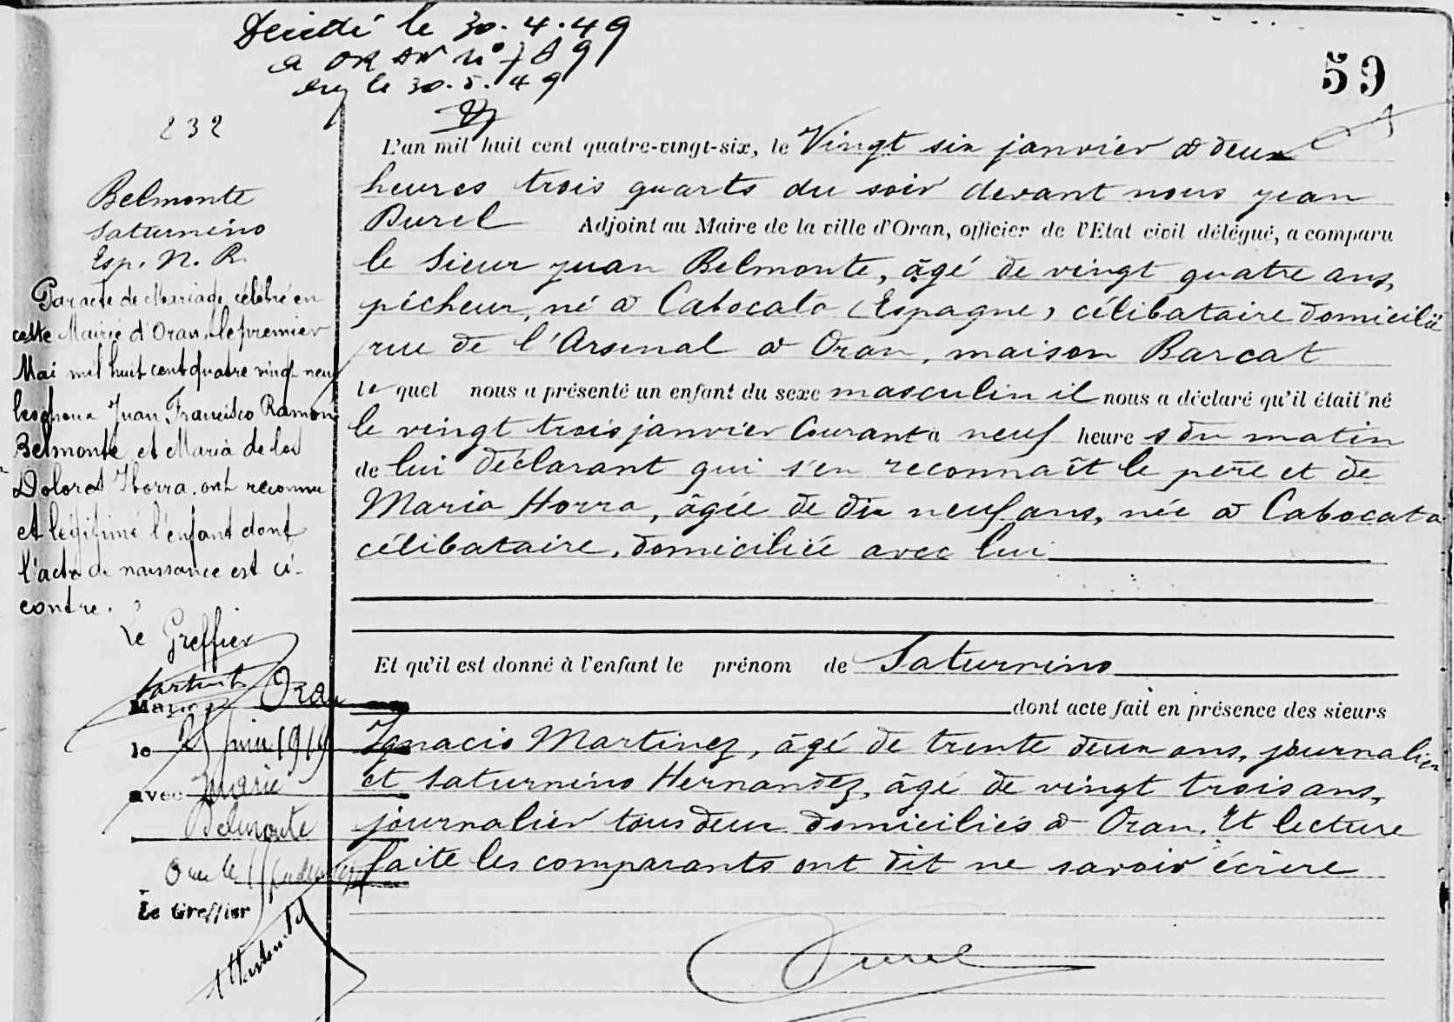 Décédé le 30.4.49
à ORAN n° 789
le 30.5.49
59
232
Belmonte
Saturnino
Esp. N. R.
Par acte de Mariage célébré en
cette Mairie d'Oran, le premier
Mai mil huit cent quatre vingt neuf
les époux Juan Francisco Ramon
Belmonte et Maria de los
Dolores Iborra ont reconnu
et légitimé l'enfant dont
l'acte de naissance est ci-
contre.
Le Greffier
Oran
le 25 juin 1919
avec Marie
Belmonte
Oran le
Le Greffier
L'an mil huit cent quatre-vingt-six, le Vingt six janvier à deux
heures trois quarts du soir devant nous Jean
Durel Adjoint au Maire de la ville d'Oran, officier de l'Etat civil délégué, a comparu
le Sieur Juan Belmonte, âgé de vingt quatre ans,
pêcheur, né à Cabocato (Espagne) célibataire domicilié
rue de l'Arsenal à Oran, maison Barcat
lequel nous a présenté un enfant du sexe masculin il nous a déclaré qu'il était né
le vingt trois janvier Courant à neuf heures du matin
de lui déclarant qui s'en reconnaît le père et de
Maria Horra, âgée de dix neuf ans, née à Cabocato
célibataire, domiciliée avec lui
Et qu'il est donné à l'enfant le prénom de Saturnino
dont acte fait en présence des sieurs
Ignacio Martinez, âgé de trente deux ans, journalier
et Saturnino Hernandez, âgé de vingt trois ans,
journalier tous deux domiciliés à Oran. Et lecture
faite les comparants ont dit ne savoir écrire
Durel